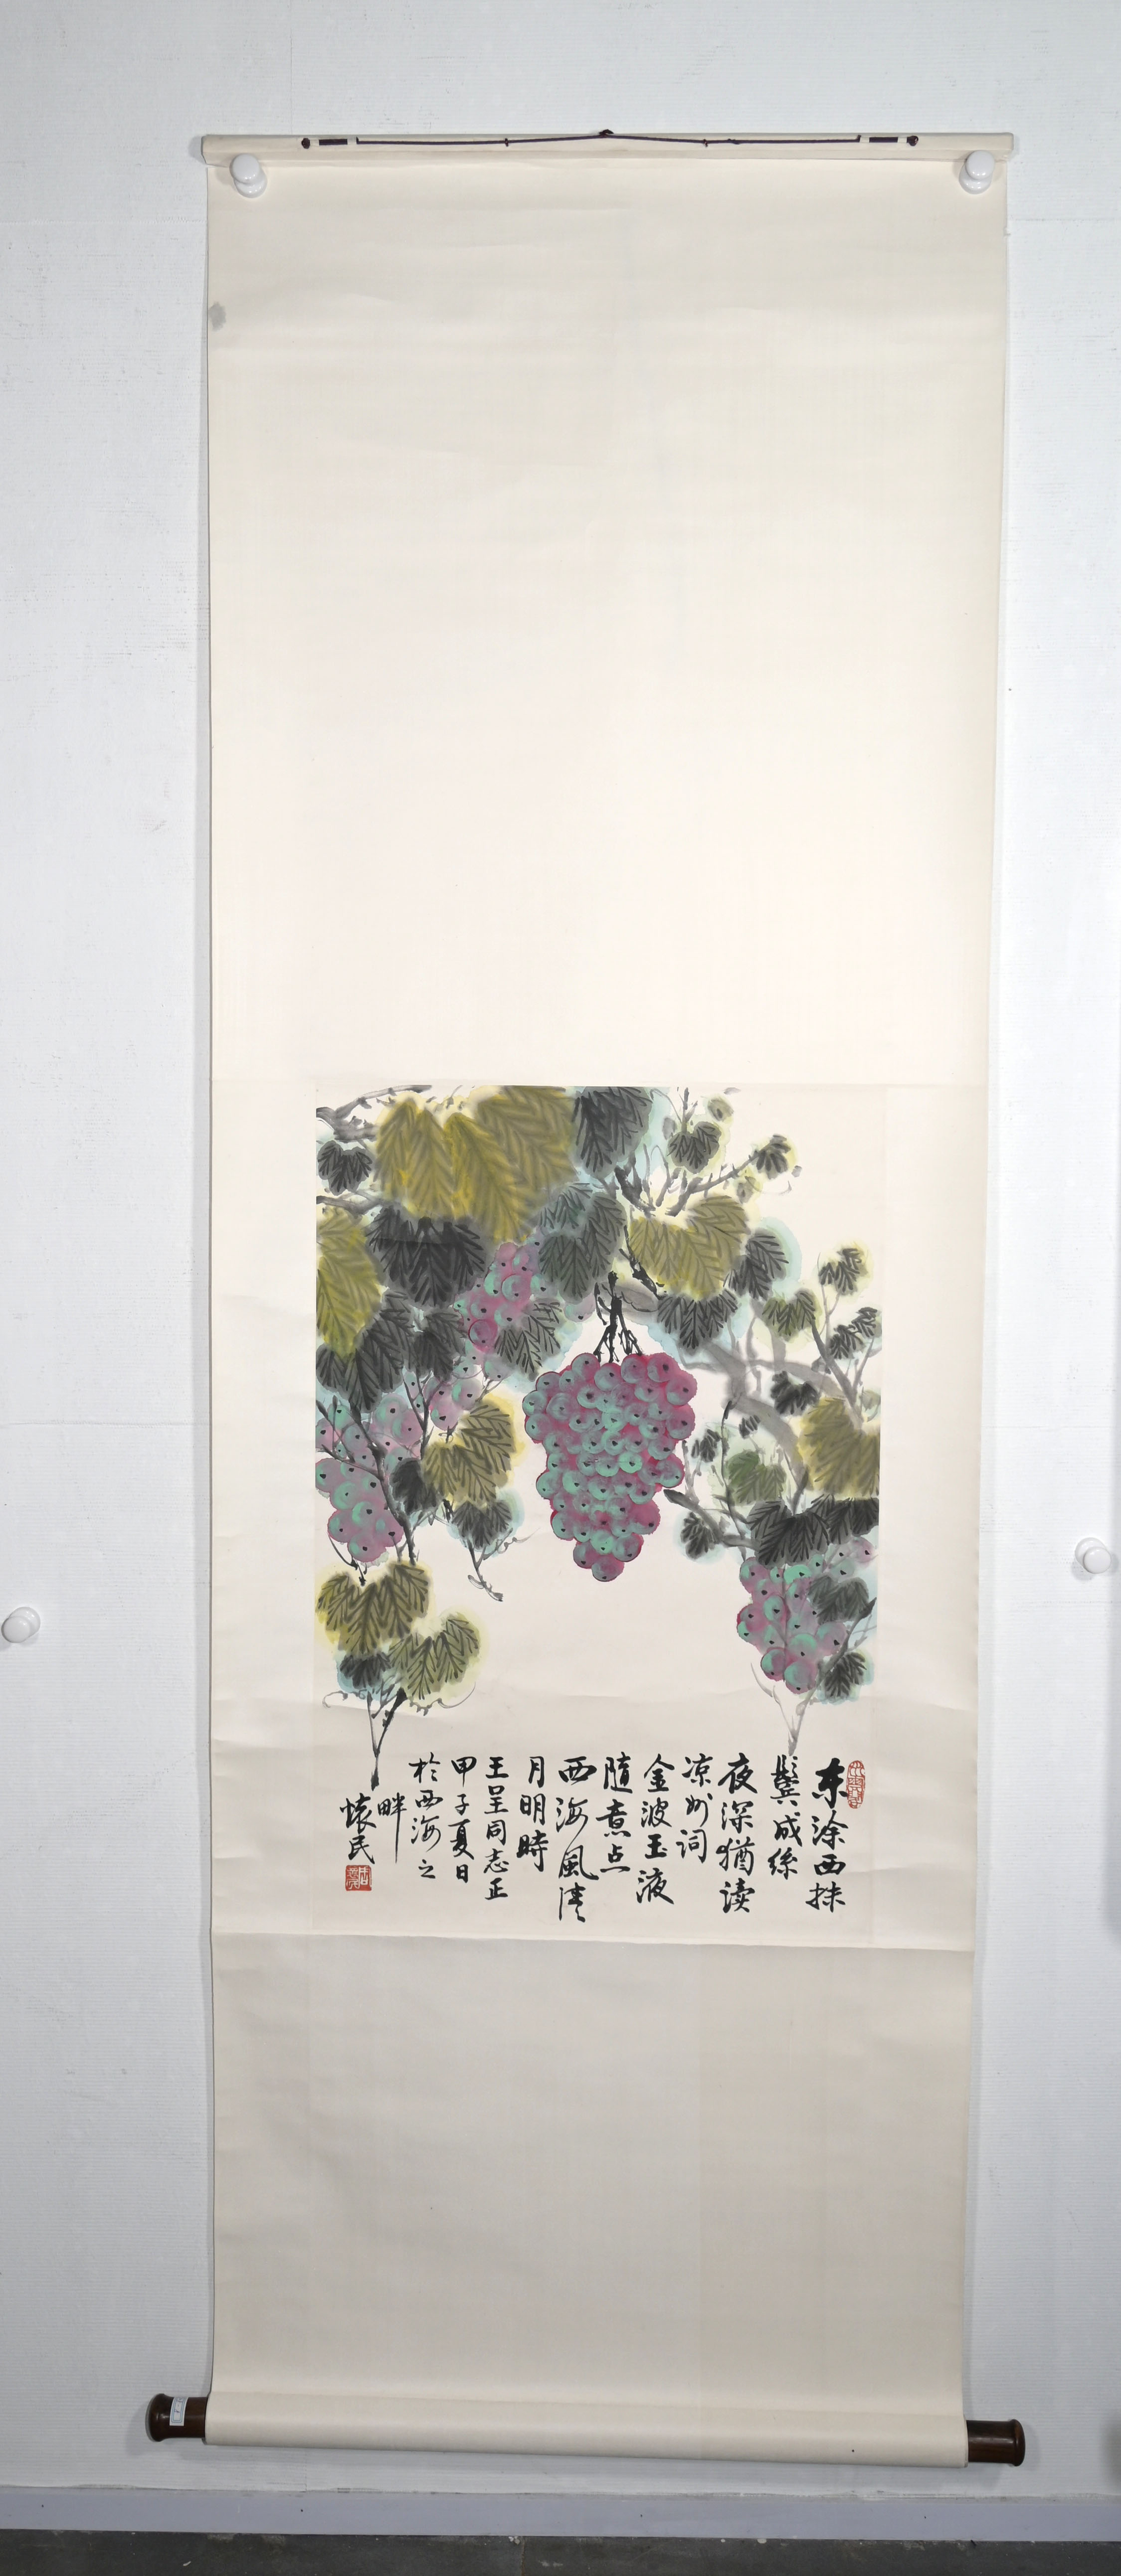 东涂西抹
鬓成絲
夜深猶读
凉州词
金波玉液
隨意点
西海風清
月明時
王呈同志正
甲子夏日
於西海之
畔
懐民